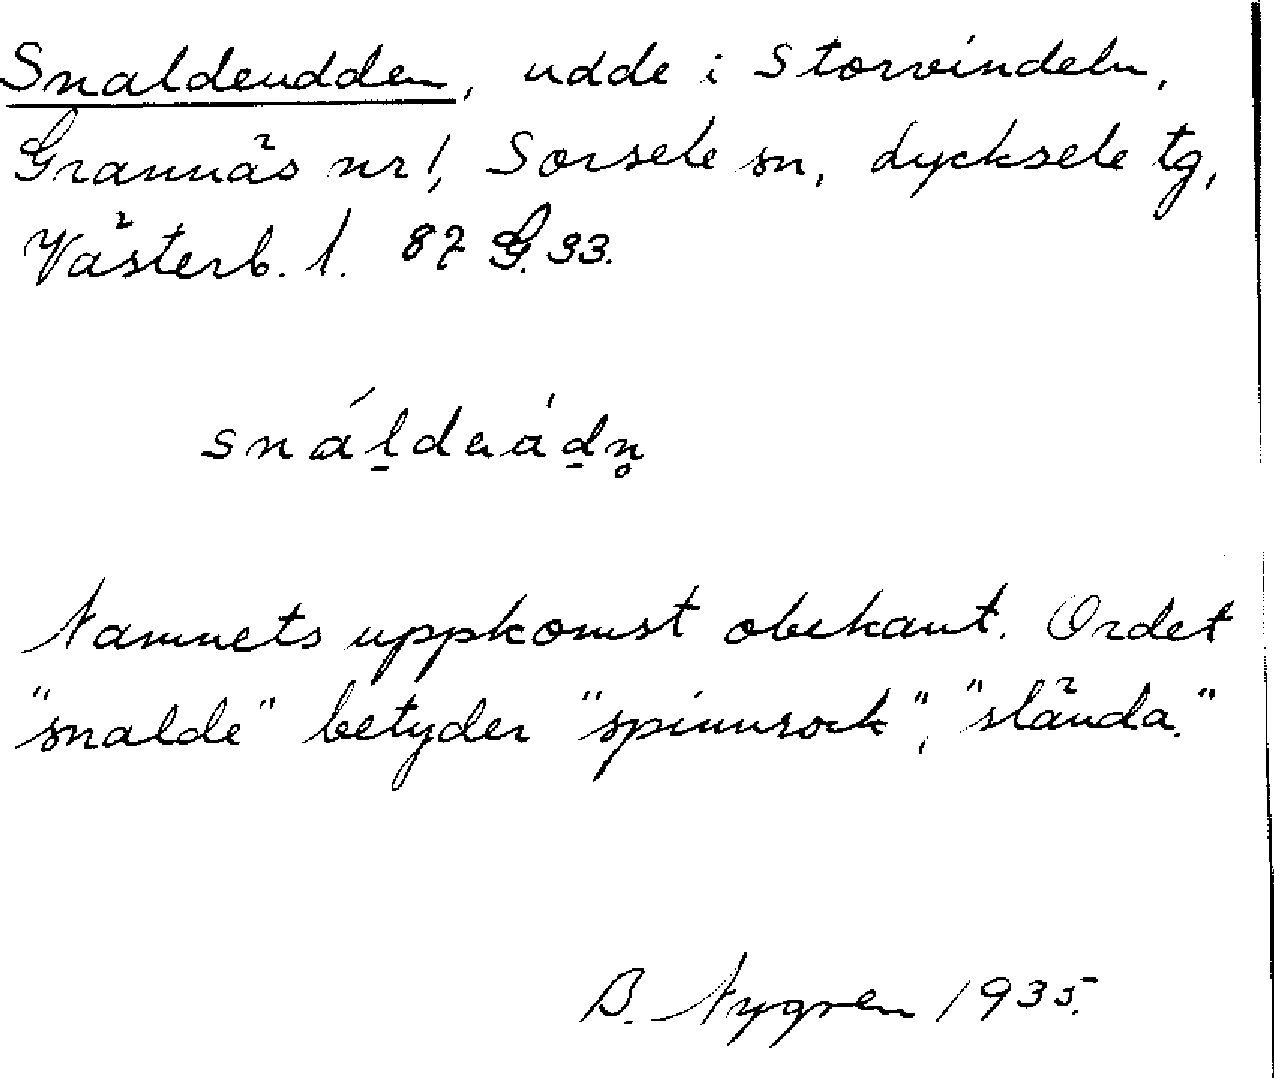 Snaldeudden, udde i Storvindeln,
Grannäs nr 1, Sorsele sn, Lycksele tg,
Västerb. l. 87 G. 33.
Namnets uppkomst obekant. Ordet
"snalde" betyder "spinnrock", "slända."
B. Nygren 1935.